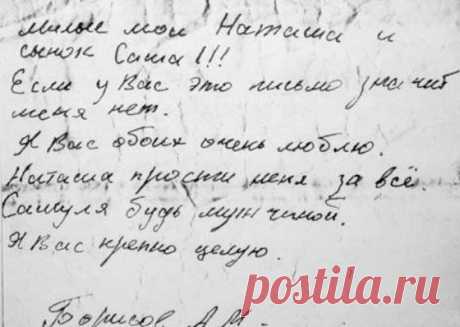 Милые мои Наташа и
сынок Саша!!!
Если у Вас это письмо значит
меня нет.
Я Вас обоих очень люблю.
Наташа прости меня за всё.
Сашуля будь мужчиной.
Я Вас крепко целую.
Борисов А.М.
postila.ru